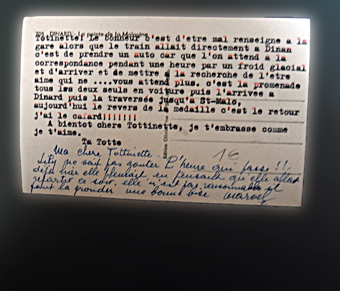 705 - DINARD - La pointe de la Malouine
Totinette! Le bonheur c'est d'etre mal renseigne a la
gare alors que le train allait directement a Dinan
c'est de prendre un autar car que l'on attend a la
correspondance pendant une heure par un froid glacial
et d'arriver et de mettre a la recherche de l'etre
aime qui ne ....vous attend plus. c'est la promenade
tous les deux seuls en voiture puis l'arrivee a
Dinard puis la traversée jusqu'a St-Malo,
aujourd'hui le revers de la medaille c'est le retour
j'ai le cafard!!!!!!!
A bientot chere Tottinette, je t'embrasse comme
je t'aime.
Ta Totte
1€
Ma chere Tottinette.
ne sait pas goûter l'heure qui passe!!
déjà hier elle pleurait en pensant qu'elle allait
repartir ce soir, elle n'est pas raisonnable il
faut la gronder une bonne bise